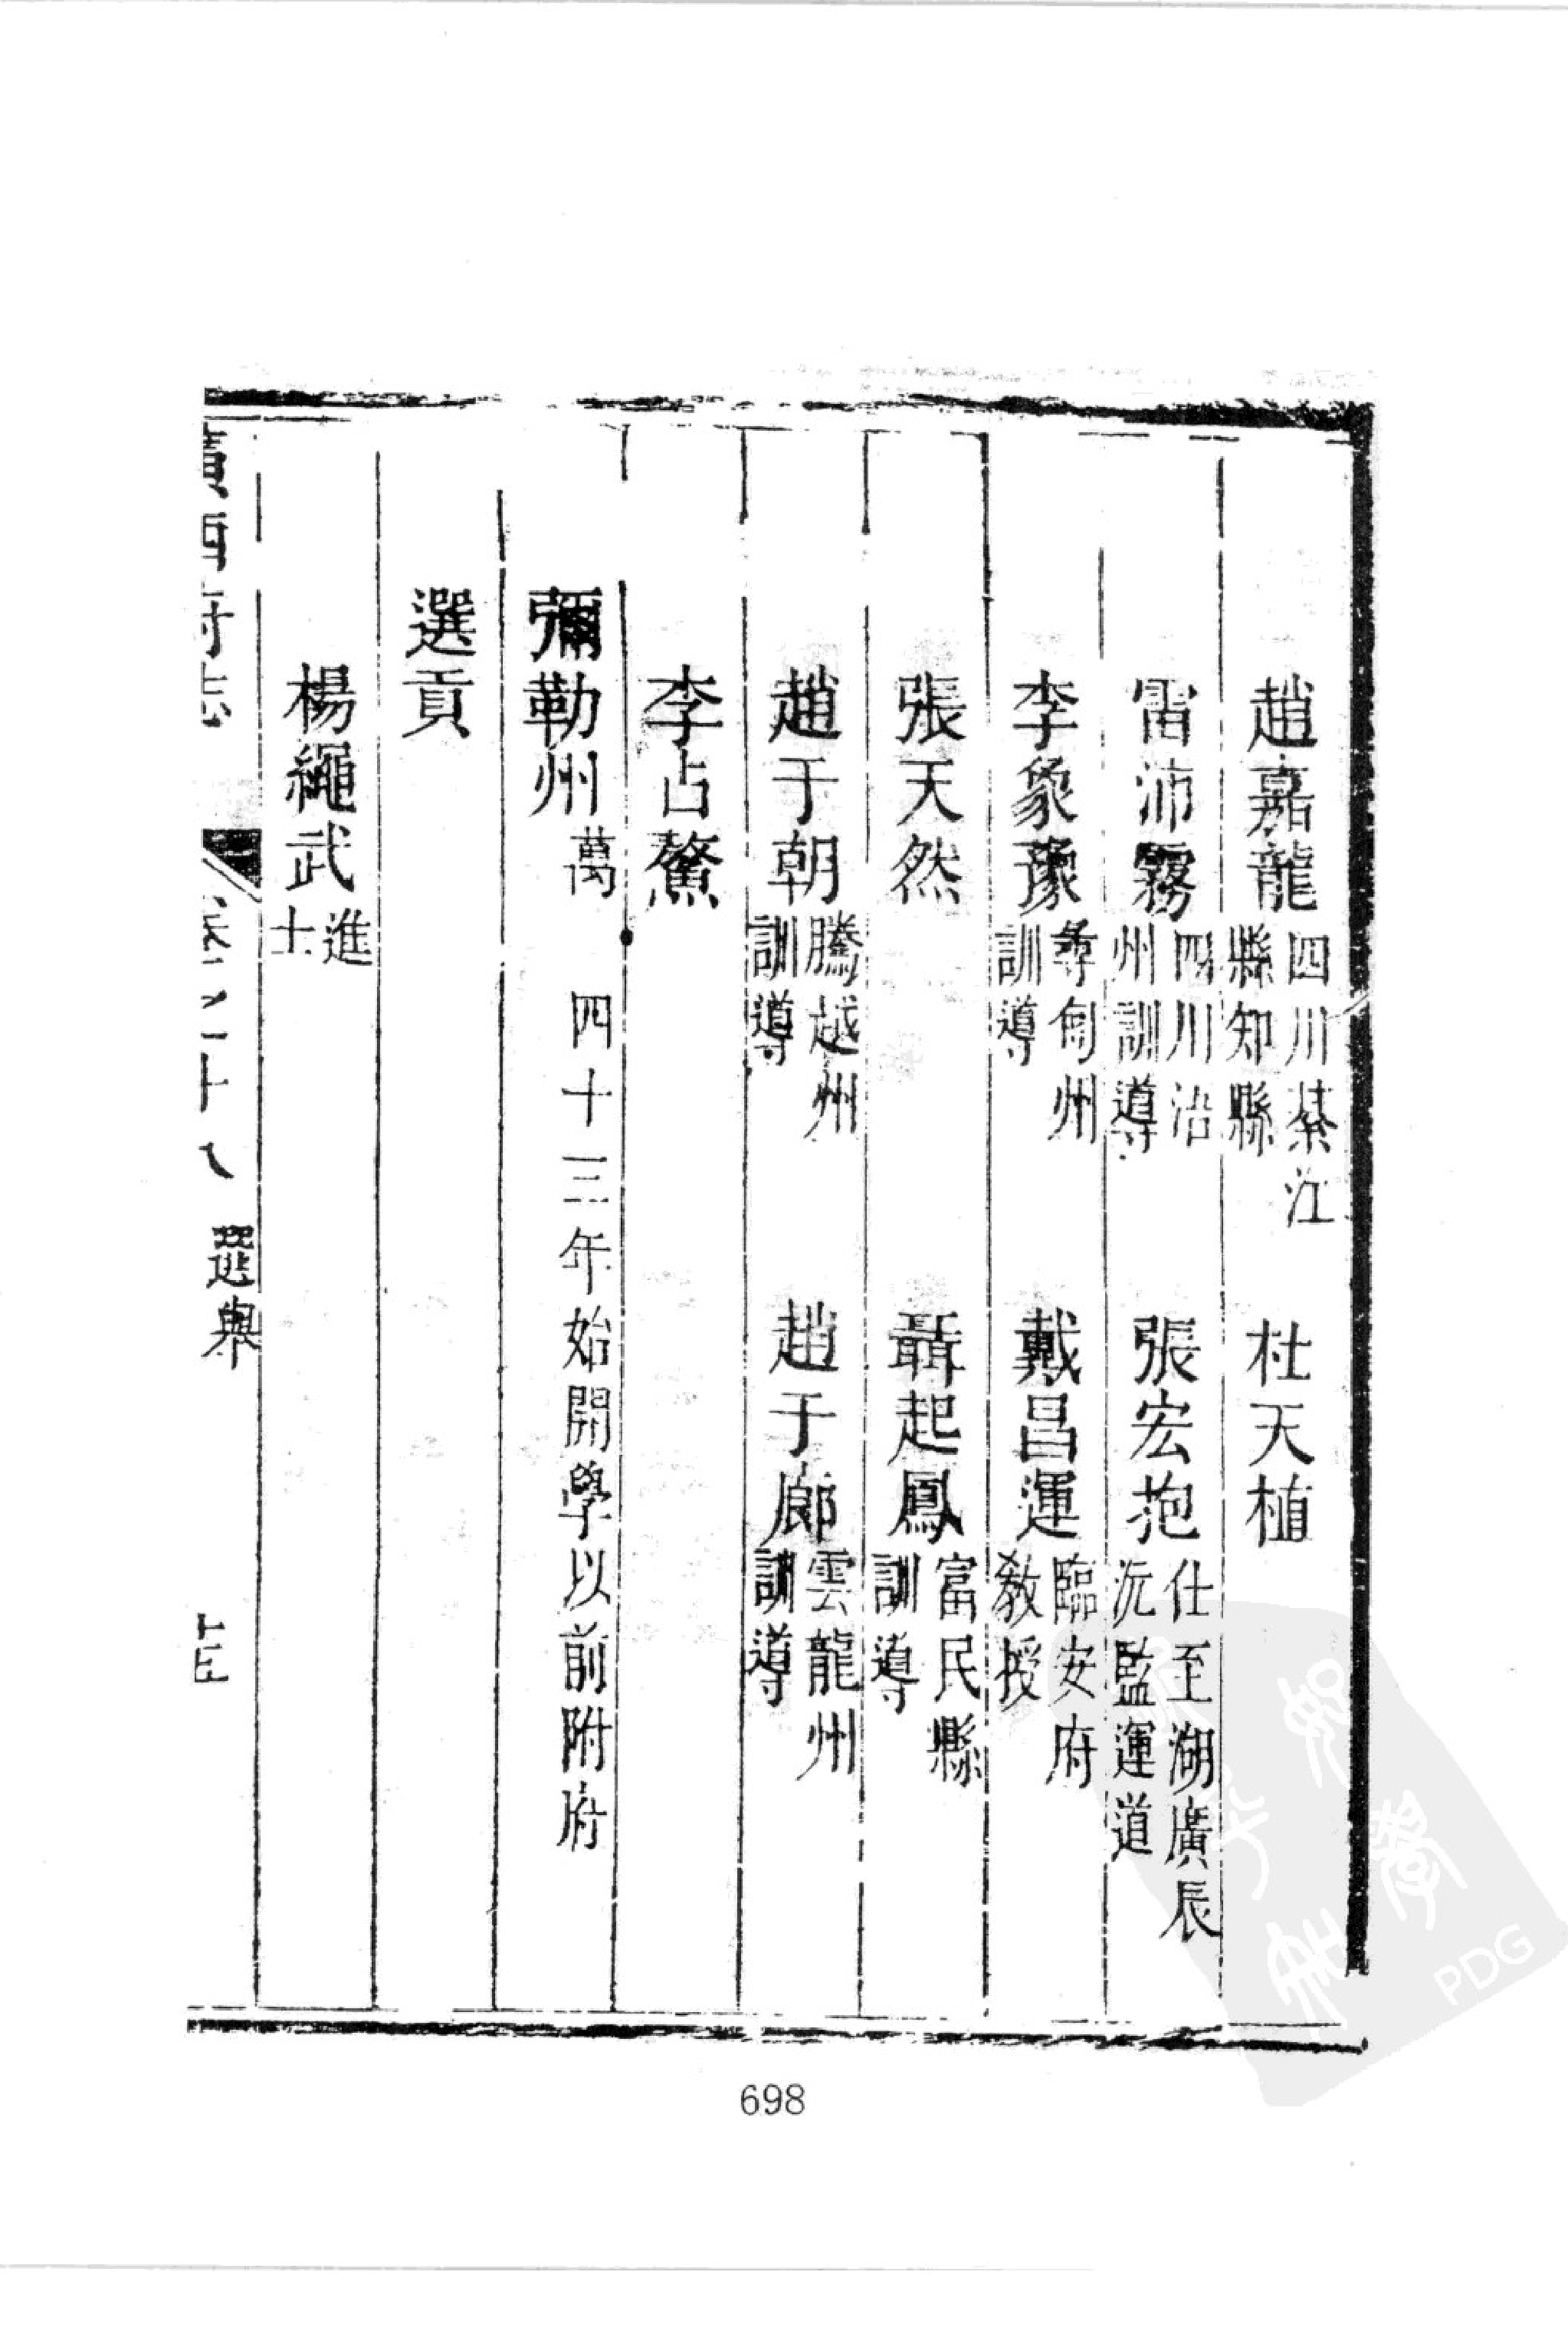 趙嘉龍四川綦江縣知縣 杜天植
雷沛霧四川沿州訓導 張宏抱仕至湖廣辰沅監運道
李象豫尋甸州訓導 戴昌運臨安府教授
張天然 聶起鳳富民縣訓導
趙于朝騰越州訓導 趙于廊雲龍州訓導
李占鰲
彌勒州萬 四十三年始開學以前附府
選貢
楊繩武進士
廣西府志 卷之十八 選舉
698
PDG